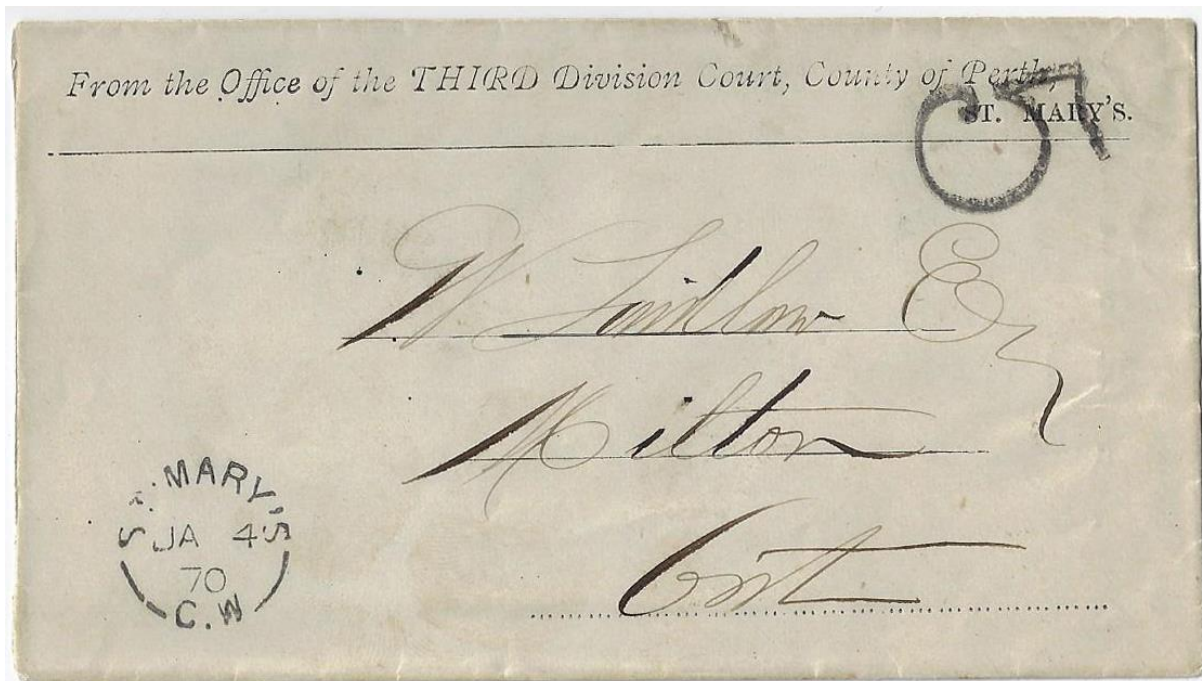 From the Office of the THIRD Division Court, County of Perth,
ST. MARY'S.
5
W Laidlaw Esq
Milton
Ont
ST. MARY'S
JA 4
70
C.W